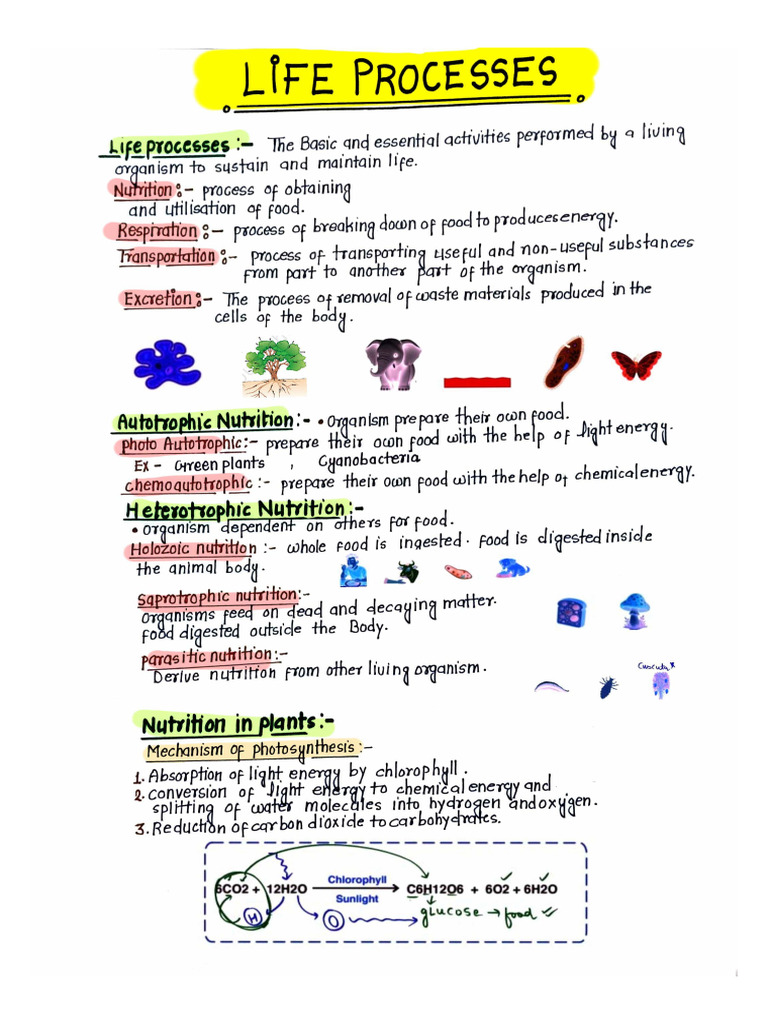 LIFE PROCESSES
Life processes :- The Basic and essential activities performed by a living
organism to sustain and maintain life.
Nutrition :- process of obtaining
and utilisation of food.
Respiration :- process of breaking down of food to produces energy.
Transportation :- process of transporting useful and non-useful substances
from part to another part of the organism.
Excretion :- The process of removal of waste materials produced in the
cells of the body.
Autotrophic Nutrition :- • Organism prepare their own food.
photo Autotrophic :- prepare their own food with the help of light energy.
Ex - Green plants , Cyanobacteria
chemoautotrophic :- prepare their own food with the help of chemical energy.
Heterotrophic Nutrition :-
• organism dependent on others for food.
Holozoic nutrition :- whole food is ingested. food is digested inside
the animal body.
saprotrophic nutrition :-
organisms feed on dead and decaying matter.
food digested outside the Body.
parasitic nutrition :-
Derive nutrition from other living organism.
Cuscuta
Nutrition in plants :-
Mechanism of photosynthesis :-
1. Absorption of light energy by chlorophyll.
2. conversion of light energy to chemical energy and
splitting of water molecules into hydrogen and oxygen.
3. Reduction of carbon dioxide to carbohydrates.
Chlorophyll
6CO2 + 12H2O → C6H12O6 + 6O2 + 6H2O
Sunlight
H O glucose → food ✓